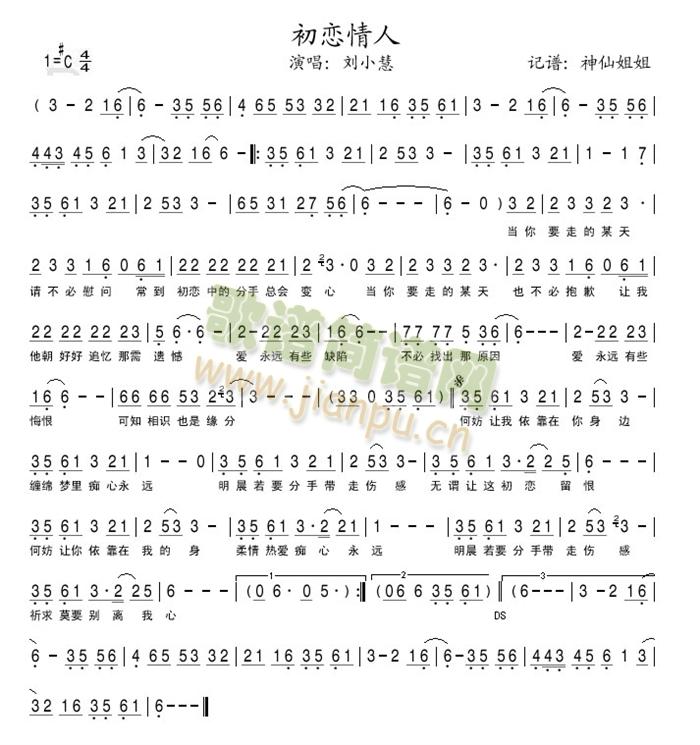 初恋情人
1=#C 4/4 演唱：刘小慧 记谱：神仙姐姐
( 3 - 2 16 | 6 - 35 56 | 4 65 53 32 | 16 35 61 | 3 - 2 16 | 6 - 35 56 |
443 45 6 1 3 | 32 16 6 - ‖: 35 61 3 21 | 2 53 3 - | 35 61 3 21 | 1 - 1 7 |
35 61 3 21 | 2 53 3 - | 65 31 27 56 | 6 - - - | 6 - 0 ) 32 | 23 3 2 3 · |
当你 要走的某天
2 3 3 2 1 6 0 61 | 22 22 22 21 | 2 3 · 0 32 | 23 3 2 3 · | 23 3 21 6 0 61 |
请不必慰问 常到 初恋中的分手总会 变心 当你 要走的某天 也不必抱歉 让我
22 22 22 23 | 5 6 · 6 · | 2-22 23 | 16 6 · | 77 77 5 36 | 6 - - - | 2-22 23 |
他朝好好追忆那需 遗憾 爱永远有些 缺陷 不必找出那原因 爱永远有些
16 6 - - | 66 66 53 23 | 3 - - - | (33 0 35 61) ‖ 35 61 3 21 | 2 53 3 - |
悔恨 可知相识也是缘分 何妨让我依靠在 你身边
35 61 3 21 | 1 - - 0 | 35 61 3 21 | 2 53 3 · | 35 61 3 · 2 | 2 5 5 - |
缠绵梦里痴心永 远 明晨若要分手带 走伤感 无谓让这初恋 留恨
35 61 3 21 | 2 53 3 - | 35 61 3 · 2 21 | 1 - - - | 35 61 3 21 | 2 53 3 - |
何妨让你依靠在 我的身 柔情热爱痴心永 远 明晨若要分手带 走伤感
35 61 3 · 2 25 | 6 - - - | (0 6 · 0 5 · ) :‖ (06 6 35 61) | - 3 - 2 16 |
祈求莫要别离我 心 DS
6 - 35 56 | 4 65 53 32 | 16 35 61 | 3 - 2 16 | 6 - 35 56 | 443 45 6 1 3 |
32 16 35 61 | 6 - - - ‖
歌谱简谱网
www.jianpu.cn